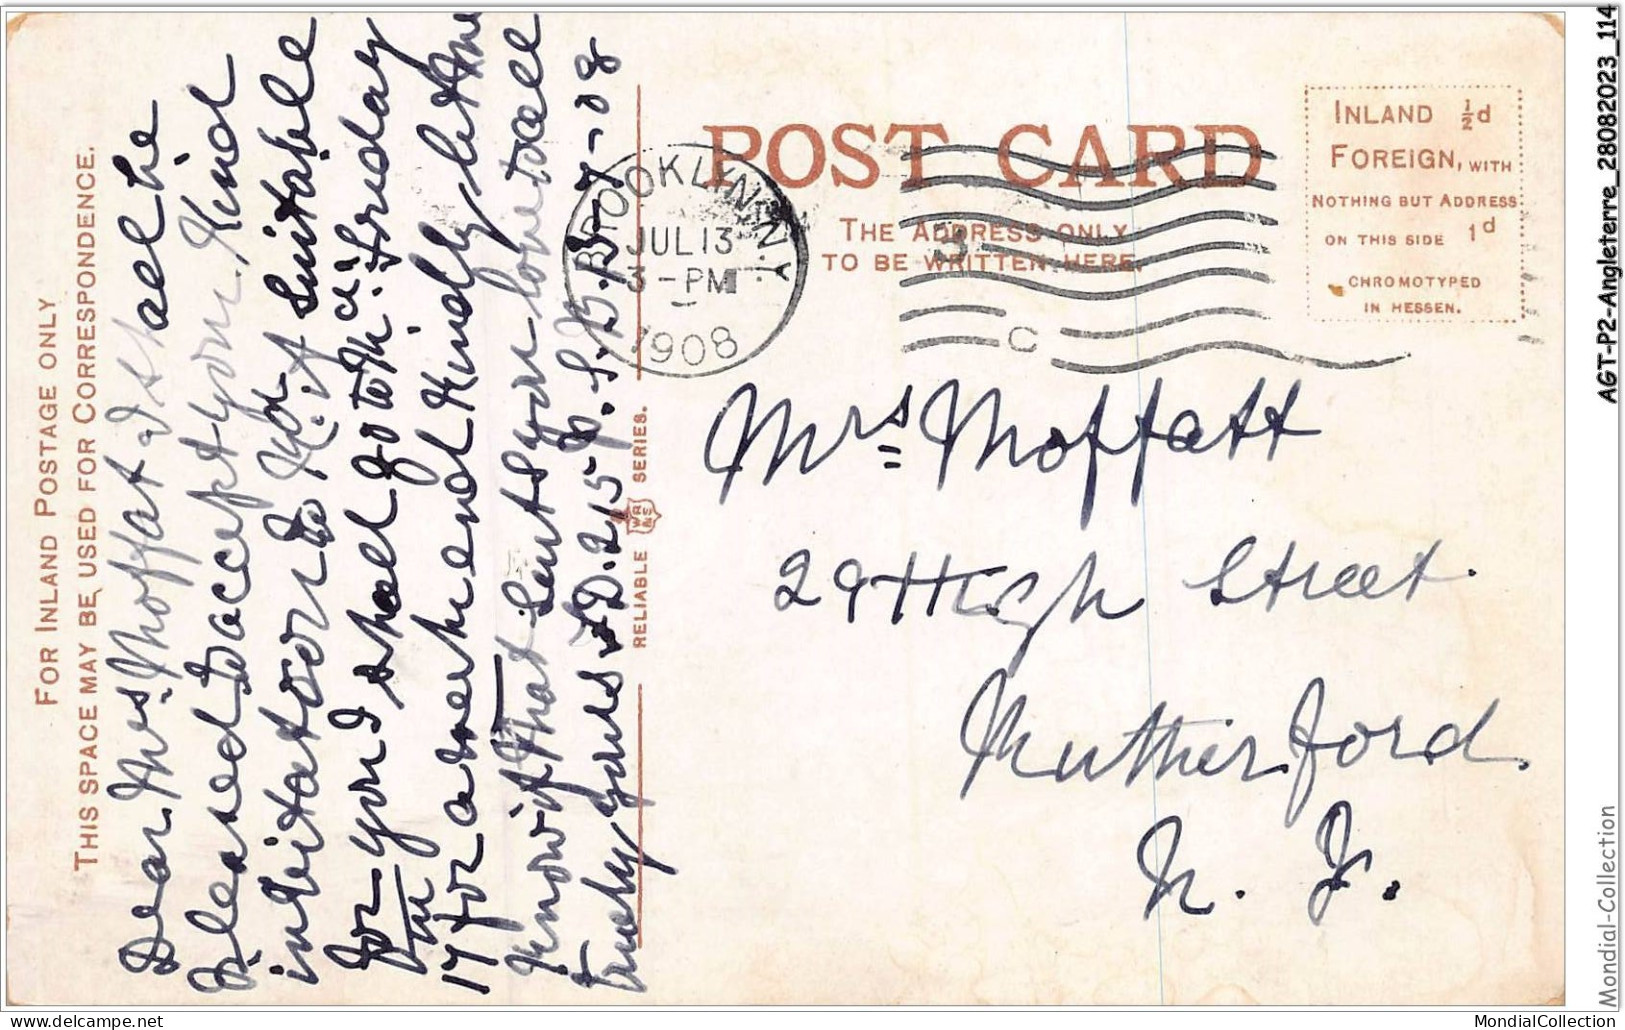 FOR INLAND POSTAGE ONLY
THIS SPACE MAY BE USED FOR CORRESPONDENCE.
Dear Mrs Moffat I shall be
Pleased to accept your Kind
invitation to if suitable
for you I shall go to Friday
17 for a week end Kindly let me
Know if that suits you love to all
Truly yours 7-08
RELIABLE SERIES.
WR&S
BROOKLYN, N.Y.
JUL 13
3-PM
1908
C
POST CARD
THE ADDRESS ONLY
TO BE WRITTEN HERE.
INLAND ½d
FOREIGN, WITH
NOTHING BUT ADDRESS
ON THIS SIDE 1d
CHROMOTYPED
IN HESSEN.
Mrs Moffatt
29 High Street
Rutherford.
N. J.
AGT-P2-Angleterre_28082023_114
Mondial-Collection
MondialCollection